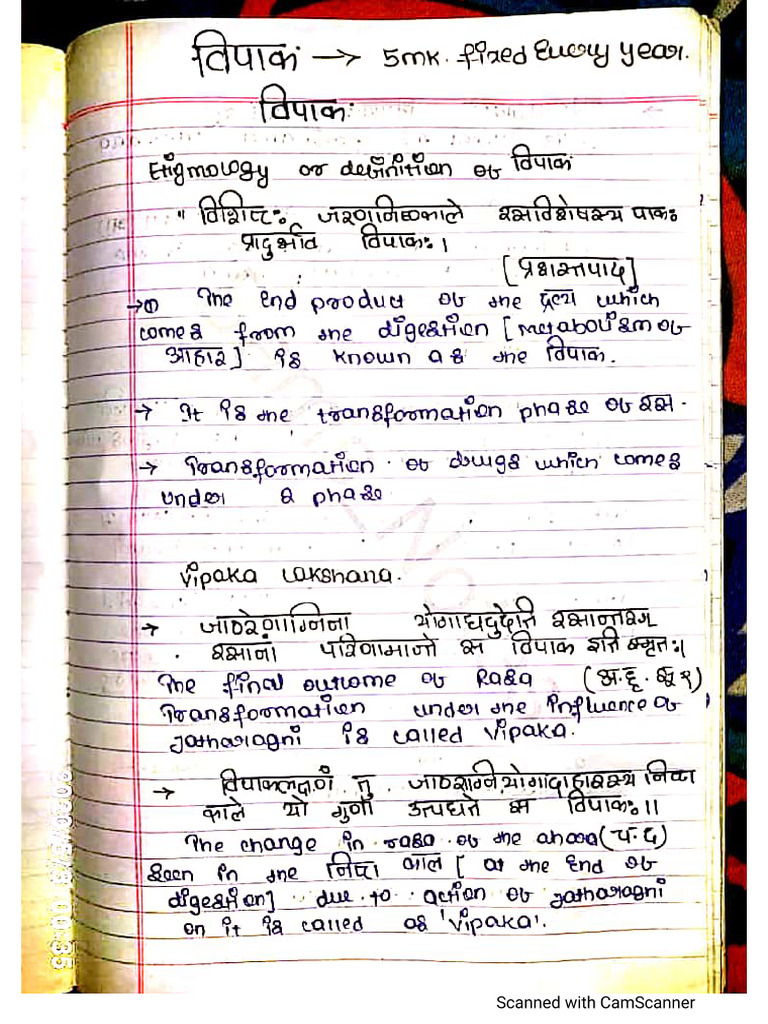 विपाक → 5mk. fixed Every year.
विपाक
Etigmology or definition of विपाक
" विशिष्टः जरणनिष्ठाकाले रसविशेषस्य पाकः
प्रादुर्भाव विपाकः।
[प्रशस्तपाद]
→① The End product of the द्रव्य which
comes from the digestion [metabolism of
आहार] is known as the विपाक.
→ It is the transformation phase of रस.
→ Transformation of drugs which comes
under 2 phase
Vipaka Lakshana.
→ जाठरेणाग्निना योगाद्यदुदेति रसान्तरम्
रसानां परिणामान्ते स विपाक इति स्मृतः।
The final outcome of Rasa (अ.हृ.सू १)
Transformation under the influence of
Jatharagni is called Vipaka.
→ विपाकलक्षणं तु जाठराग्नि योगादाहारस्य निष्ठा
काले यो गुण उत्पद्यते स विपाकः।।
The change in rasa of the ahara (च.द)
seen in the निष्ठा काल [at the End of
digestion] due to action of Jatharagni
on it is called as 'Vipaka'.
Scanned with CamScanner